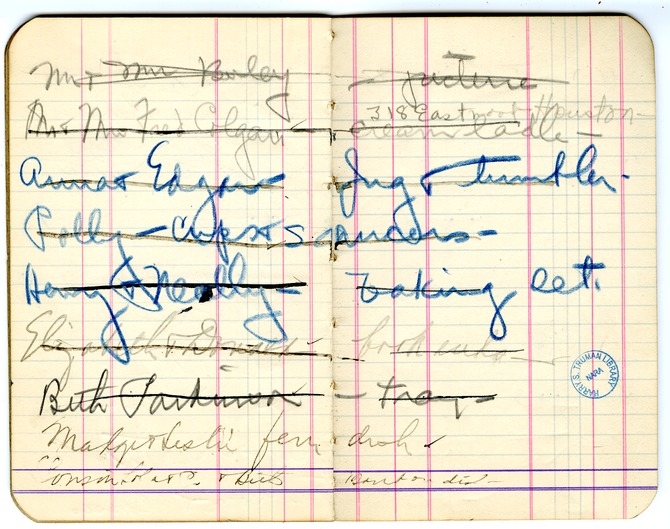 Mr + Mrs Burley - picture
Mr + Mrs Fred Colgan
318 East Houston
cream ladle -
Anna + Edgar - Jug + tumbler.
Polly - cups + saucers -
Henry + Neally - baking set.
Elizabeth + Donald - book ends -
Beth Parkinson - tray -
Madge + Leslie fern dish
HARRY S. TRUMAN LIBRARY
NARA